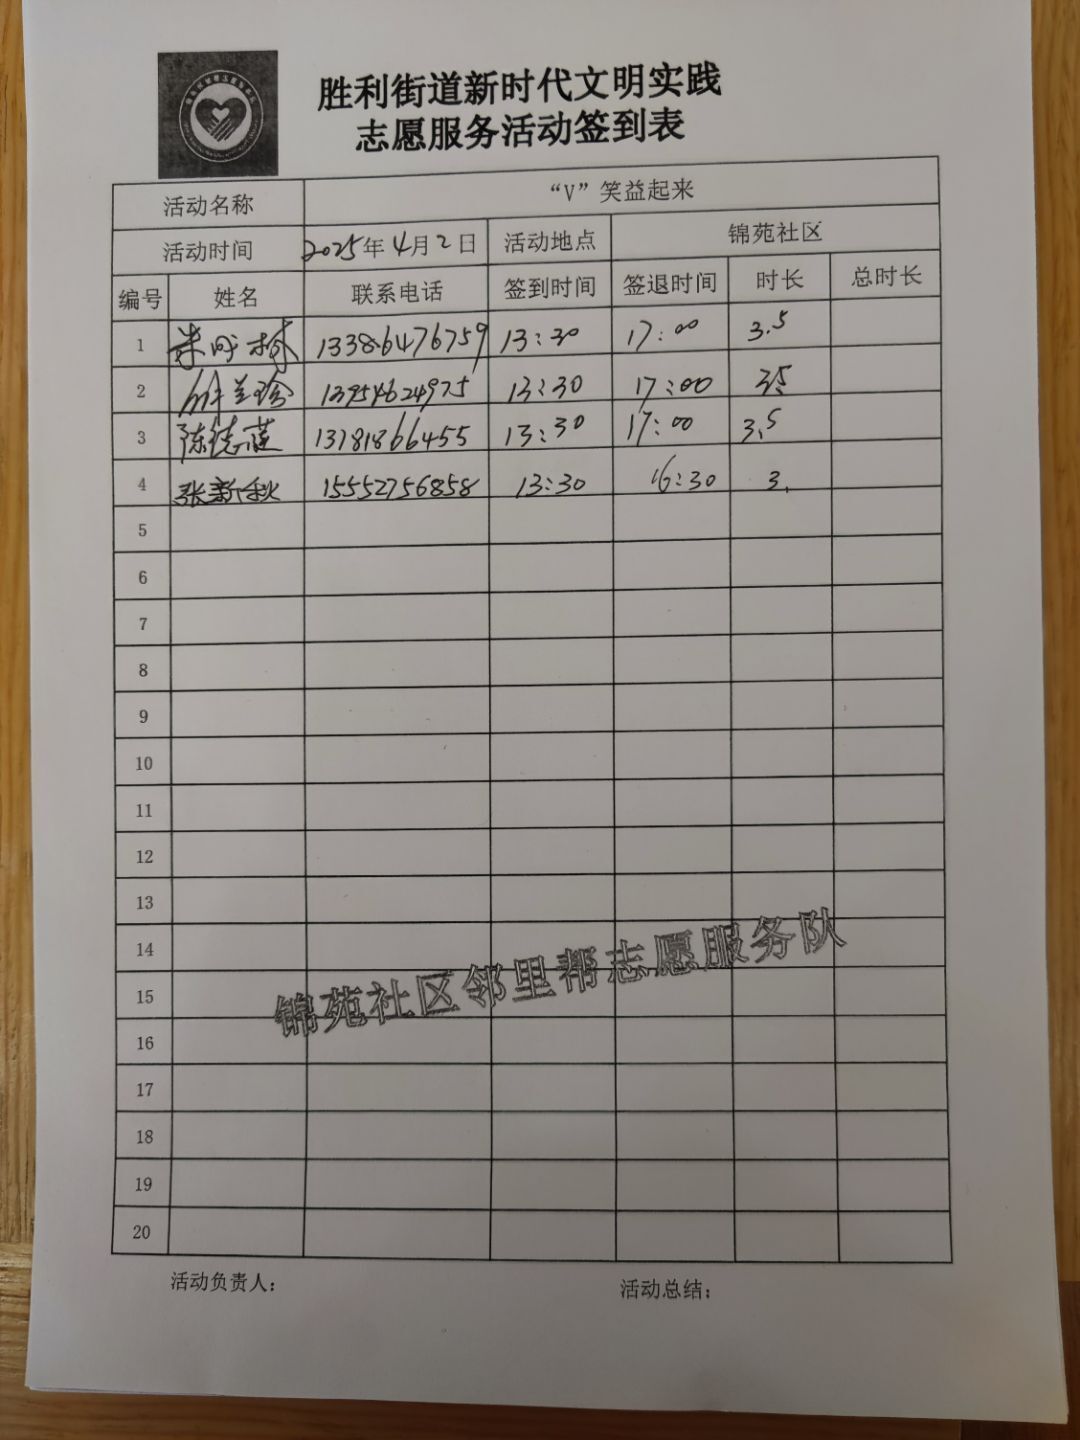 胜利街道新时代文明实践
志愿服务活动签到表
活动名称 “V”笑益起来
活动时间 2025年4月2日 活动地点 锦苑社区
编号 姓名 联系电话 签到时间 签退时间 时长 总时长
1 13386476759 13:30 17:00 3.5
2 13954624975 13:30 17:00 3.5
3 陈德莲 13181866455 13:30 17:00 3.5
4 张新秋 15552756858 13:30 16:30 3.
5
6
7
8
9
10
11
12
13
14
15
16
17
18
19
20
锦苑社区邻里帮志愿服务队
活动负责人: 活动总结: